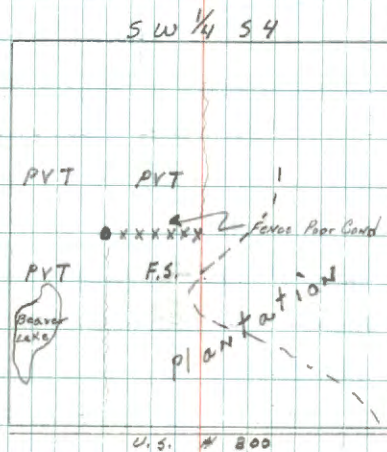 SW 1/4 S4
PVT PVT
Fence Poor Cond
PVT F.S.
Beaver Lake
Plantation
U.S. # 200